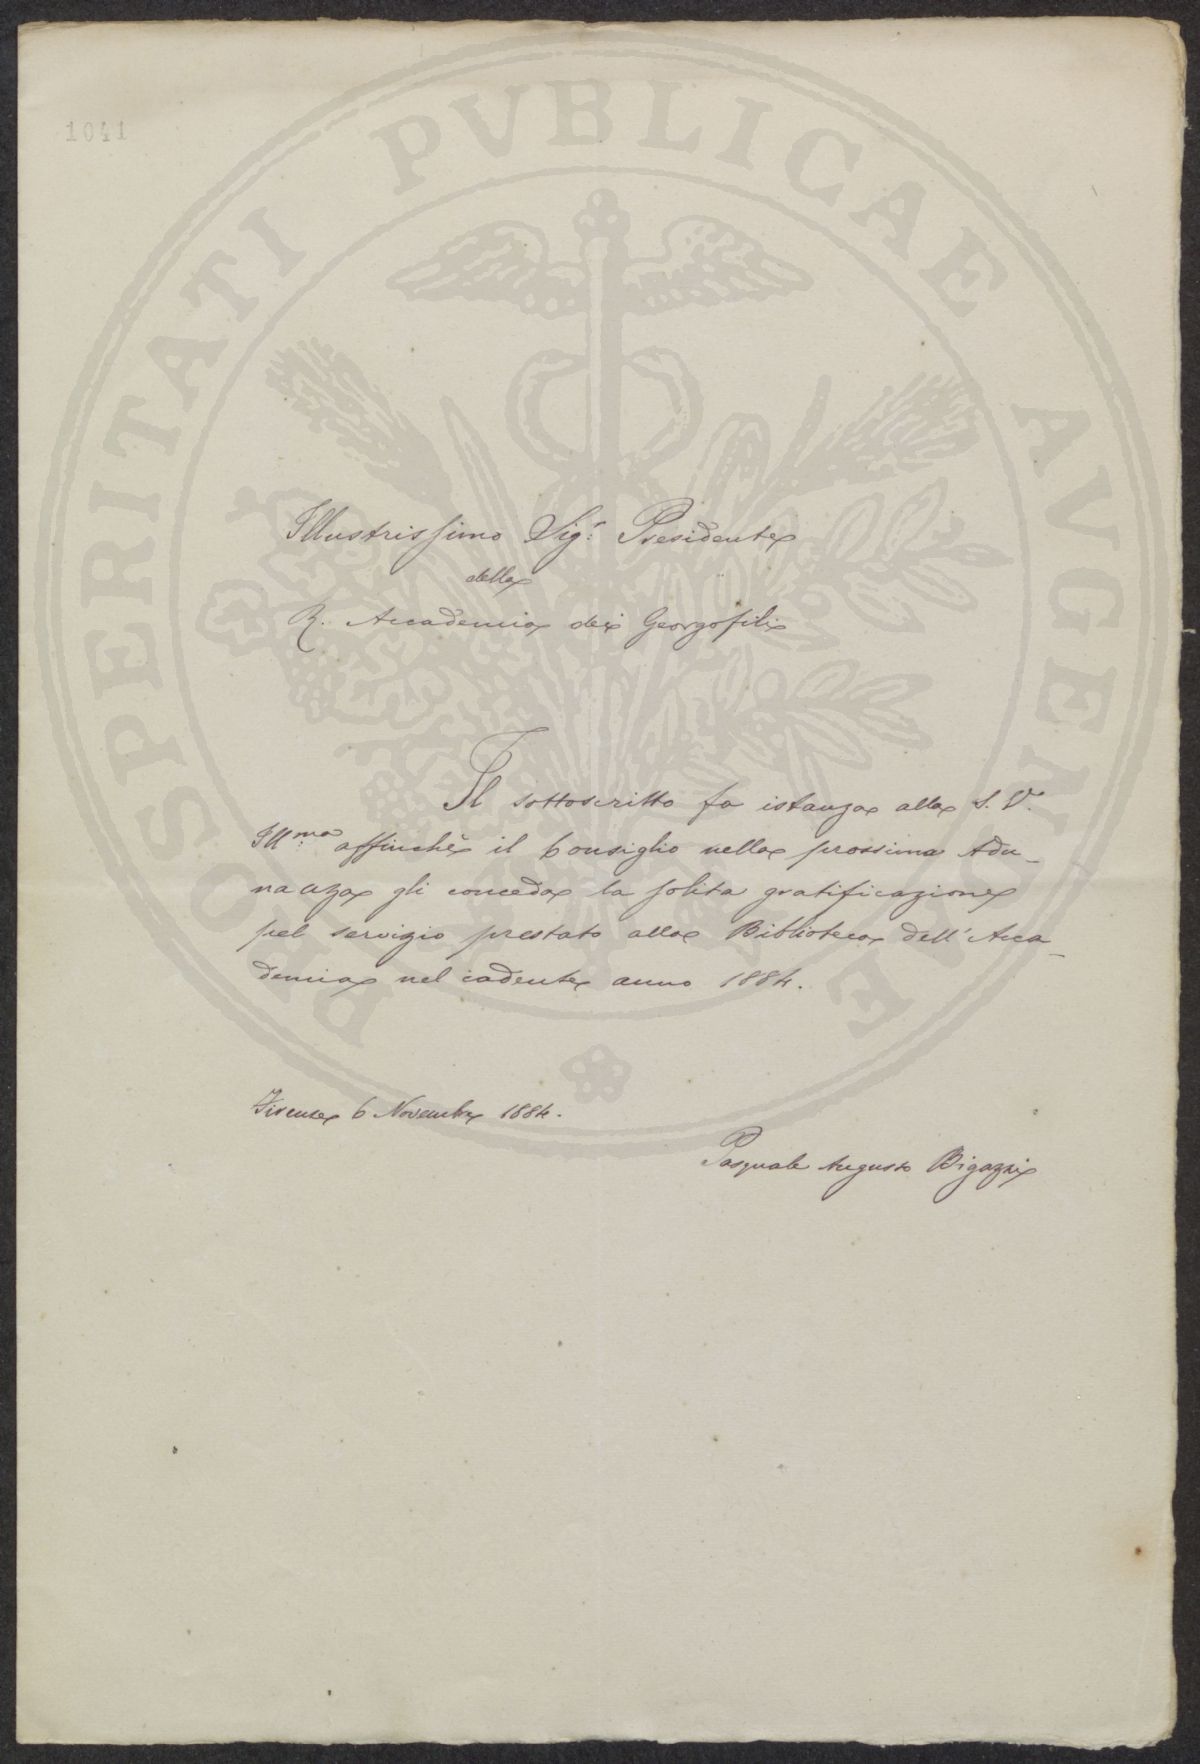 1041
PROSPERITATI PVBLICAE AVGENDAE
Illustrissimo Sig.r Presidente
della
R. Accademia dei Georgofili
Il sottoscritto fa istanza alla S. V.
Ill.ma affinchè il Consiglio nella prossima Adu-
nanza gli conceda la solita gratificazione
pel servizio prestato alla Biblioteca dell'Acca-
demia nel cadente anno 1884.
Firenze 6 Novembre 1884.
Pasquale Augusto Bigazzi